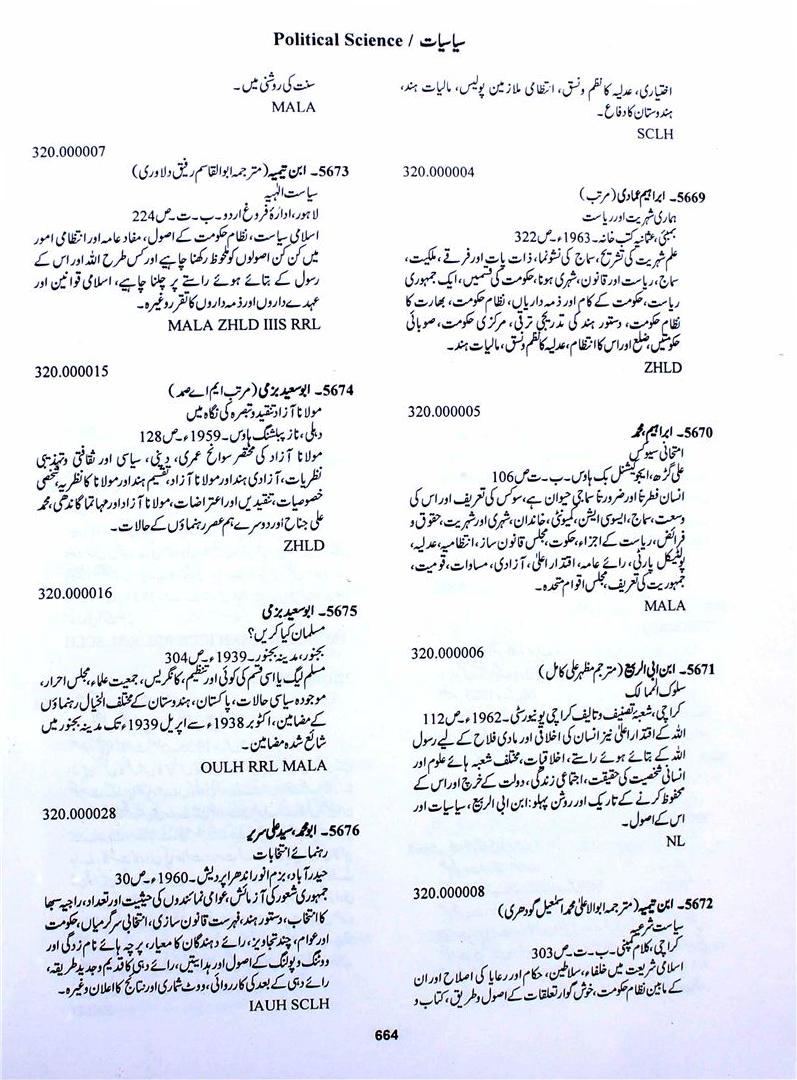 Political Science / سیاسیات
اختیاری، عدلیہ کا نظم ونسق، انتظامی ملازمین پولیس، مالیات ہند،
ہندوستان کا دفاع۔
SCLH
320.000004
5669۔ ابراہیم عمادی (مرتب)
ہماری شہریت اور ریاست
بمبئی، عثمانیہ کتب خانہ۔ 1963ء۔ ص 322
علم شہریت کی تشریح، سماج کی نشو نما، ذات پات اور فرقے، ملکیت،
سماج، ریاست اور قانون، شہری ہونا، حکومت کی قسمیں، ایک جمہوری
ریاست، حکومت کے کام اور ذمہ داریاں، نظام حکومت، بھارت کا
نظام حکومت، دستور ہند کی تدریجی ترقی، مرکزی حکومت، صوبائی
حکومتیں، ضلع اور اس کا انتظام، عدلیہ کا نظم ونسق، مالیات ہند۔
ZHLD
320.000005
5670۔ ابراہیم، محمد
امتحانی سیوکس
علی گڑھ، ایجوکیشنل بک ہاوس۔ ب۔ت۔ ص 106
انسان فطرتاً اور ضرورتاً سماجی حیوان ہے، سوکس کی تعریف اور اس کی
وسعت، سماج، ایسوسی ایشن، کمیونٹی، خاندان، شہری اور شہریت، حقوق و
فرائض، ریاست کے اجزاء، حکوت، مجلس قانون ساز، انتظامیہ، عدلیہ،
پولٹیکل پارٹی، رائے عامہ، اقتدار اعلیٰ، آزادی، مساوات، قومیت،
جمہوریت کی تعریف، مجلس اقوام متحدہ۔
MALA
320.000006
5671۔ ابن ابی الربیع (مترجم مظہر علی کامل)
سلوک الممالک
کراچی، شعبۂ تصنیف وتالیف کراچی یونیورسٹی۔ 1962ء۔ ص 112
اللہ کے اقتدار اعلیٰ نیز انسان کی اخلاقی اور مادی فلاح کے لیے رسول
اللہ کے بتائے ہوئے راستے، اخلاقیات، مختلف شعبہ ہائے علوم اور
انسانی شخصیت کی حقیقت، اجتماعی زندگی، دولت کے خرچ اور اس کے
محفوظ کرنے کے تاریک اور روشن پہلو: ابن ابی الربیع، سیاسیات اور
اس کے اصول۔
NL
320.000008
5672۔ ابن تیمیہ (مترجمہ ابوالاعلیٰ محمد اسمٰعیل گودھری)
سیاست شرعیہ
کراچی، کلام کمپنی۔ ب۔ت۔ ص 303
اسلامی شریعت میں خلفاء، سلاطین، حکام اور رعایا کی اصلاح اور ان
کے مابین نظام حکومت، خوش گوار تعلقات کے اصول وطریق، کتاب و
سنت کی روشنی میں۔
MALA
320.000007
5673۔ ابن تیمیہ (مترجمہ ابوالقاسم رفیق دلاوری)
سیاست الٰہیہ
لاہور، ادارۂ فروغ اردو۔ ب۔ت۔ ص 224
اسلامی سیاست، نظام حکومت کے اصول، مفاد عامہ اور انتظامی امور
میں کن کن اصولوں کو ملحوظ رکھنا چاہیے اور کس طرح اللہ اور اس کے
رسول کے بتائے ہوئے راستے پر چلنا چاہیے، اسلامی قوانین اور
عہدے داروں اور ذمہ داروں کا تقرر وغیرہ۔
MALA ZHLD IIIS RRL
320.000015
5674۔ ابوسعید بزمی (مرتب ایم اے صمد)
مولانا آزاد تنقید وتبصرہ کی نگاہ میں
دہلی، ناز پبلشنگ ہاوس۔ 1959ء۔ ص 128
مولانا آزاد کی مختصر سوانح عمری، دینی، سیاسی اور ثقافتی وتہذیبی
نظریات، آزادی ہند اور مولانا آزاد، تقسیم ہند اور مولانا کا نظریہ، شخصی
خصوصیات، تنقیدیں اور اعتراضات، مولانا آزاد اور مہاتما گاندھی، محمد
علی جناح اور دوسرے ہم عصر رہنماؤں کے حالات۔
ZHLD
320.000016
5675۔ ابوسعید بزمی
مسلمان کیا کریں؟
بجنور، مدینہ بجنور۔ 1939ء۔ ص 304
مسلم لیگ یا اسی قسم کی کوئی اور تنظیم، کانگریس، جمعیت علماء، مجلس احرار،
موجودہ سیاسی حالات، پاکستان، ہندوستان کے مختلف الخیال رہنماؤں
کے مضامین، اکتوبر 1938ء سے اپریل 1939ء تک مدینہ بجنور میں
شائع شدہ مضامین۔
OULH RRL MALA
320.000028
5676۔ ابومحمد، سید علی سریر
رہنمائے انتخابات
حیدرآباد، بزم انور اندھرا پردیش۔ 1960ء۔ ص 30
جمہوری شعور کی آزمائش، عوامی نمائندوں کی حیثیت اور تعداد، راجیہ سبھا
کا انتخاب، دستور ہند، فہرست قانون سازی، انتخابی سرگرمیاں، حکومت
اور عوام، چند تجاویز، رائے دہندگان کا معیار، پرچہ ہائے نام زدگی اور
ووٹنگ و پولنگ کے اصول اور ہدایتیں، رائے دہی کا قدیم وجدید طریقہ،
رائے دہی کے بعد کی کارروائی، ووٹ شماری اور نتائج کا اعلان وغیرہ۔
IAUH SCLH
664